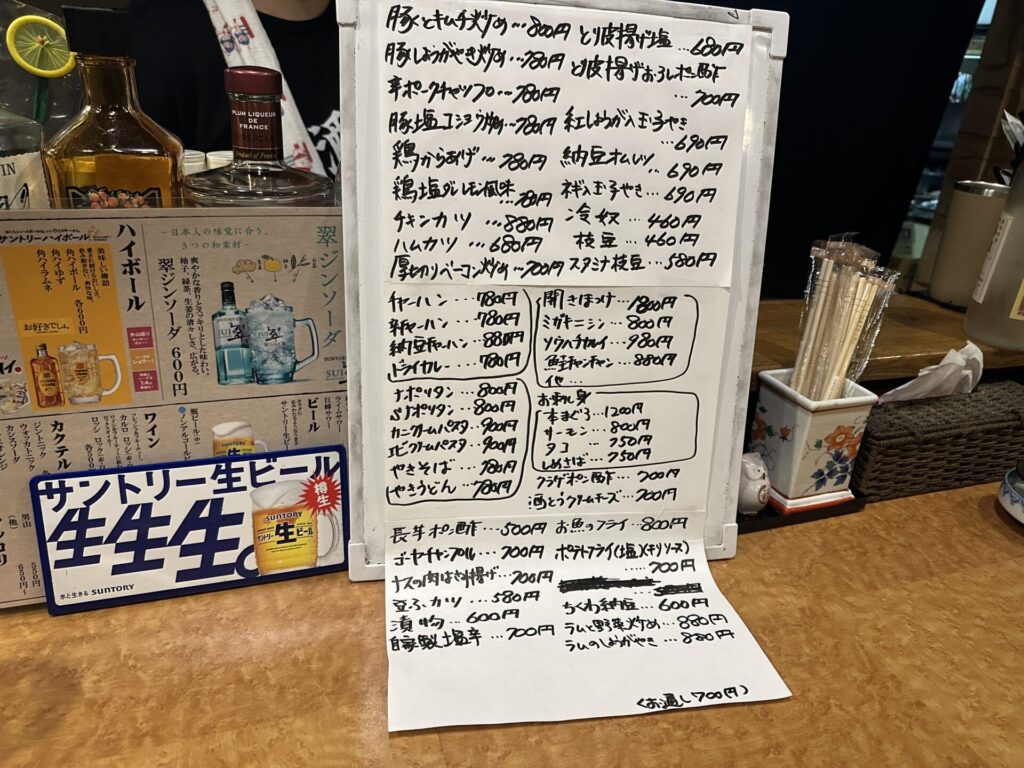 豚とキムチ炒め…800円
豚しょうがやき炒め…780円
辛ポークチャップ…780円
豚塩コショウ炒め…780円
鶏からあげ…780円
鶏塩ダレレモン風味…780円
チキンカツ…880円
ハムカツ…680円
厚切りベーコン炒め…700円
とり皮揚げ塩…680円
とり皮揚げおろしポン酢
…700円
紅しょうが入玉子やき
…690円
納豆オムレツ…690円
ネギ入玉子やき…690円
冷奴…460円
枝豆…460円
スタミナ枝豆…580円
チャーハン…780円
辛チャーハン…780円
納豆チャーハン…880円
ドライカレー…780円
ナポリタン…800円
カニクリームパスタ…900円
エビクリームパスタ…900円
やきそば…780円
やきうどん…780円
開きほっけ…1800円
ミガキニシン…800円
ソウハチカレイ…980円
鮭チャンチャン…880円
他…
お刺し身
本まぐろ…1200円
サーモン…800円
タコ…750円
しめさば…750円
クラゲポン酢…700円
酒とうクリームチーズ…700円
長芋ポン酢…500円
ゴーヤチャンプル…700円
ナスの肉はさみ揚げ…700円
豆ふカツ…580円
漬物…600円
自家製塩辛…700円
お魚のフライ…800円
ポテトフライ(塩)(チリソース)
…700円
ちくわ納豆…600円
ラムと野菜炒め…880円
ラムのしょうがやき…880円
(お通し700円)
PLUM LIQUEUR
DE
FRANCE
Product of France
サントリーハイボール
ハイボール
美味しい神話
角ハイボール 各600円
角ハイゆず
角ハイラムネ
お好きでしょ。
日本人の味覚に合う、
3つの和素材
翠ジンソーダ
爽やかな香りとスッキリとした味わい。
柚子、緑茶、生姜の清々しさ、広がる。
翠ジンソーダ 600円
ビール
サントリー生ビール
ワイン
ノンアルコール
カクテル
ジントニック
ウォッカトニック
カシスソーダ
男山 550円
(他) 650円~
サントリー生ビール
生生生。
樽生
SUNTORY
サントリー生ビール
生
水と生きる SUNTORY